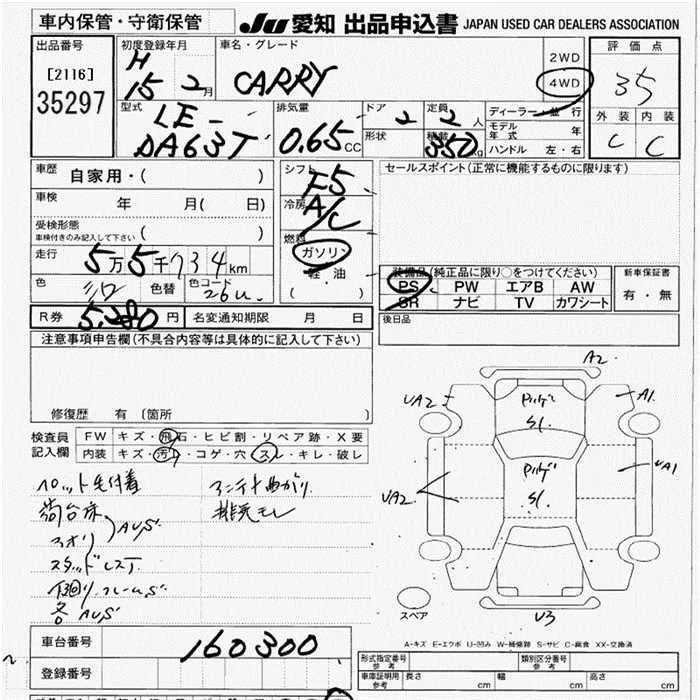 車内保管・守衛保管 JU 愛知 出品申込書 JAPAN USED CAR DEALERS ASSOCIATION
出品番号 初度登録年月 車名・グレード 2WD 評価点
[2116] H 15 2月 CARRY 4WD 35
35297 型式 排気量 ドア 2 定員 2人 ディーラー・並行 外装 内装
LE- 0.65CC 形状 積載 350kg モデル年式 年 C C
DA63T ハンドル 左・右
車歴 自家用・( ) シフト F5 セールスポイント(正常に機能するものに限ります)
車検 年 月( 日) 冷房 A/C
受検形態 ( )
車検付きのみ記入して下さい 燃料
走行 5万5千734km ガソリン 装備品(純正品に限り○をつけてください) 新車保証書
色 シロ 色替 色コード 26U 軽油 PS PW エアB AW 有・無
( ) SR ナビ TV カワシート
R券 5,280円 名変通知期限 月 日 後日品
注意事項申告欄(不具合内容等は具体的に記入して下さい)
A2
UA2 A1
S(
修復歴 有(箇所 )
検査員 FW キズ・飛石・ヒビ割・リペア跡・X要
記入欄 内装 キズ・汚レ・コゲ・穴・スレ・キレ・破レ
UA1
S(
UA2
荷台床
アオリ AUS
スタッドレス
下回り フレームS
各AUS
アンテナ曲がり
排気モレ
スペア U3
A-キズ E-エクボ U-凹み W-補修跡 S-サビ C-腐食 XX-交換済
車台番号 160300
形式指定番号 参考 類別区分番号 参考
登録番号 車庫証明用 参考 長さ cm 幅 cm 高さ cm